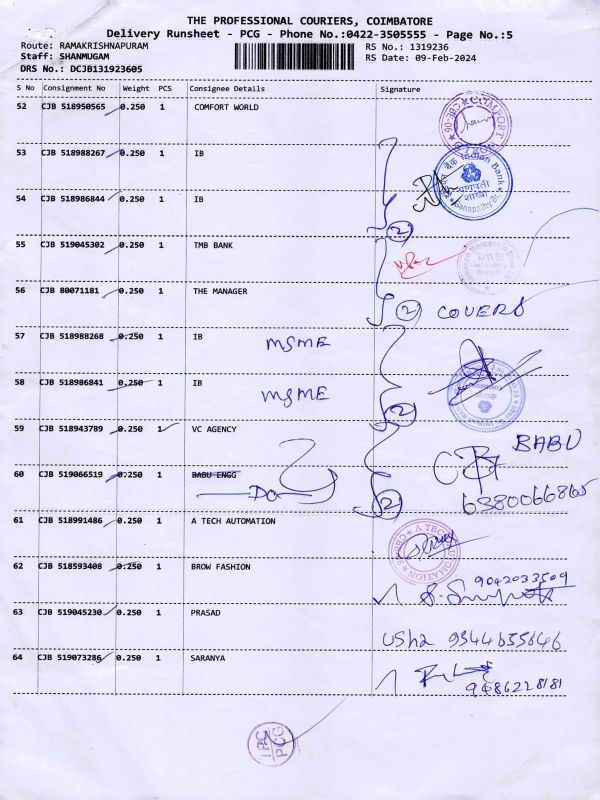 THE PROFESSIONAL COURIERS, COIMBATORE
Delivery Runsheet - PCG - Phone No.:0422-3505555 - Page No.:5
Route: RAMAKRISHNAPURAM RS No.: 1319236
Staff: SHANMUGAM RS Date: 09-Feb-2024
DRS No.: DCJB131923605
S No Consignment No Weight PCS Consignee Details Signature
52 CJB 518950565 0.250 1 COMFORT WORLD
COMFORT
53 CJB 518988267 0.250 1 IB
Indian Bank
गणपती
शाखा
54 CJB 518986844 0.250 1 IB
2
55 CJB 519045302 0.250 1 TMB BANK
TMB
Branch
56 CJB 80071181 0.250 1 THE MANAGER
2 COVERS
57 CJB 518988268 0.250 1 IB
MSME
58 CJB 518986841 0.250 1 IB
MSME
2
59 CJB 518943789 0.250 1 VC AGENCY
BABU
60 CJB 519066519 0.250 1 BABU ENGG
Do 2
63800668165
61 CJB 518991486 0.250 1 A TECH AUTOMATION
A TECH AUTOMATION
62 CJB 518593408 0.250 1 BROW FASHION
9042033509
63 CJB 519045230 0.250 1 PRASAD
Usha 9344655646
64 CJB 519073286 0.250 1 SARANYA
9486228181
PCG